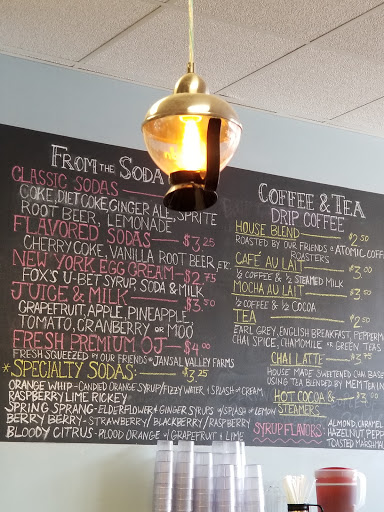 FROM THE SODA
CLASSIC SODAS
COKE, DIET COKE, GINGER ALE, SPRITE
ROOT BEER, LEMONADE
FLAVORED SODAS $3.25
CHERRY COKE, VANILLA ROOT BEER, ETC.
NEW YORK EGG CREAM $2.75
FOX'S U-BET SYRUP, SODA & MILK
JUICE & MILK $3.50
GRAPEFRUIT, APPLE, PINEAPPLE,
TOMATO, CRANBERRY OR MOO
FRESH PREMIUM OJ $4.00
FRESH SQUEEZED BY OUR FRIENDS @ JANSAL VALLEY FARMS
*SPECIALTY SODAS: $3.25
ORANGE WHIP - CANDIED ORANGE SYRUP/FIZZY WATER & SPLASH OF CREAM,
RASPBERRY LIME RICKEY
SPRING SPRANG - ELDERFLOWER & GINGER SYRUPS W/ SPLASH OF LEMON
BERRY BERRY - STRAWBERRY/BLACKBERRY/RASPBERRY
BLOODY CITRUS - BLOOD ORANGE W/ GRAPEFRUIT & LIME
COFFEE & TEA
DRIP COFFEE
HOUSE BLEND $2.50
ROASTED BY OUR FRIENDS @ ATOMIC COFFEE
ROASTERS
CAFÉ AU LAIT $3.00
½ COFFEE & ½ STEAMED MILK
MOCHA AU LAIT $3.00
½ COFFEE & ½ COCOA
TEA $2.50
EARL GREY, ENGLISH BREAKFAST, PEPPERM
CHAI SPICE, CHAMOMILE OR GREEN TEAS
CHAI LATTE $3.75
HOUSE MADE SWEETENED CHAI BASE
USING TEA BLENDED BY MEM TEA IN
HOT COCOA & $3.00
STEAMERS
SYRUP FLAVORS: ALMOND, CARAMEL
HAZELNUT, PEPP
TOASTED MARSHMAL